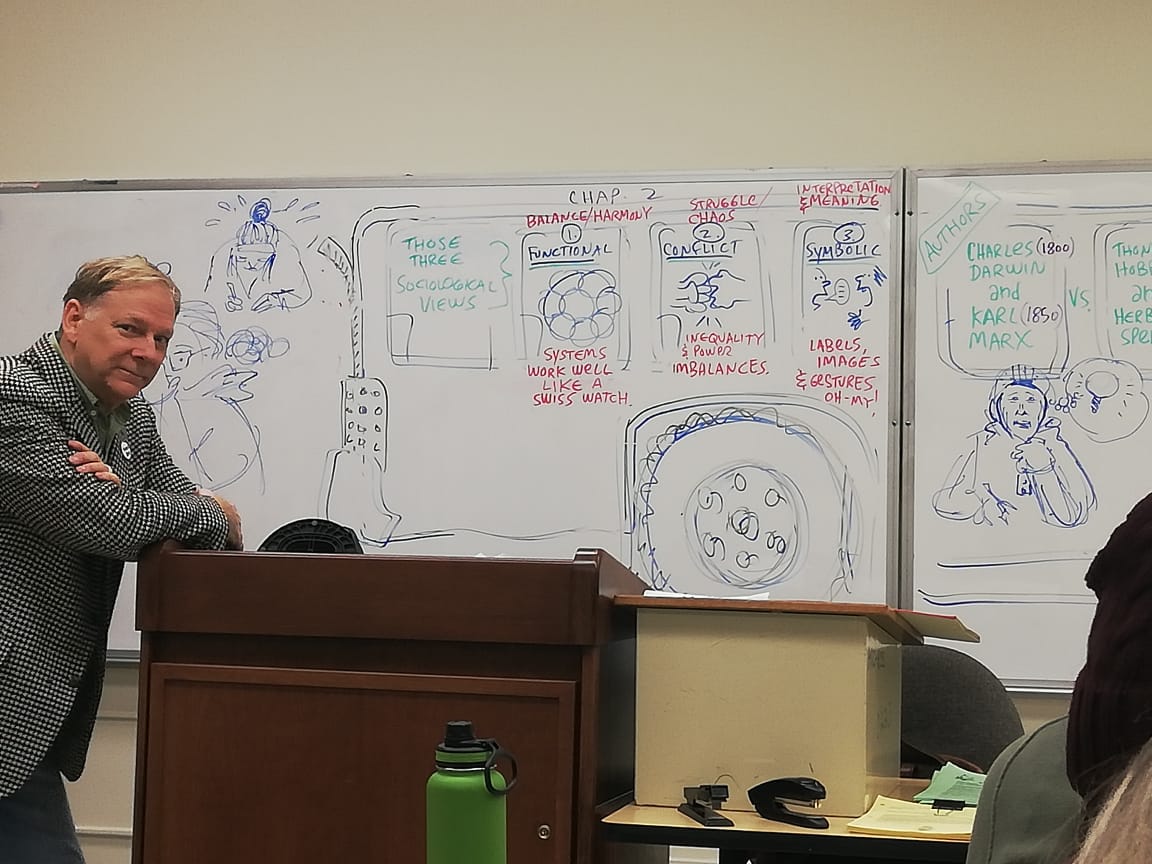 CHAP. 2
THOSE
THREE
SOCIOLOGICAL
VIEWS
BALANCE/HARMONY
1
FUNCTIONAL
SYSTEMS
WORK WELL
LIKE A
SWISS WATCH.
STRUGGLE/
CHAOS
2.
CONFLICT
INEQUALITY
& POWER
IMBALANCES.
INTERPRETATION
& MEANING
3
SYMBOLIC
LABELS,
IMAGES
& GESTURES,
OH-MY!
AUTHORS
CHARLES (1800)
DARWIN
and
KARL (1850)
MARX
VS.